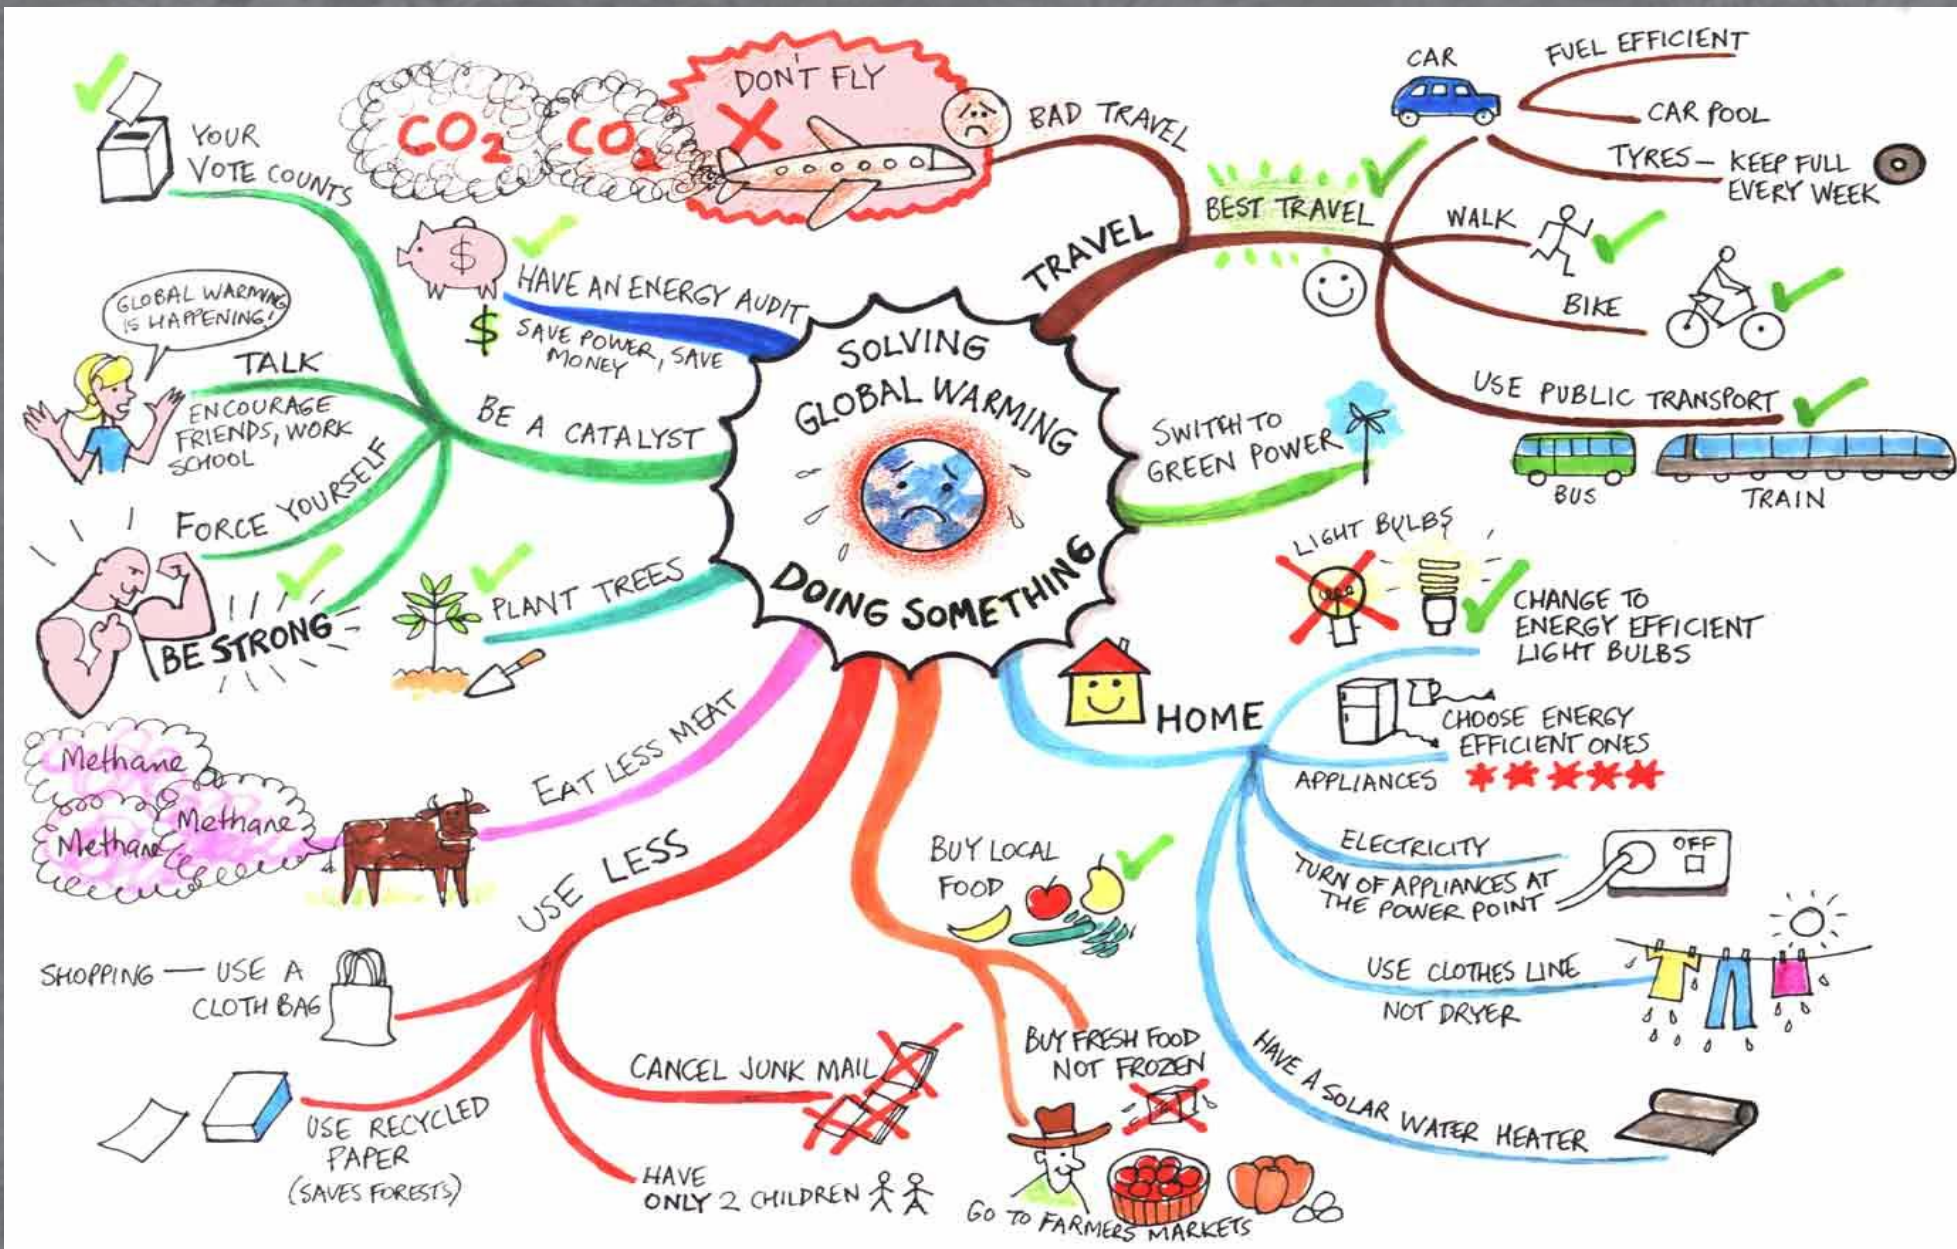 SOLVING
GLOBAL WARMING
DOING SOMETHING
TRAVEL
BAD TRAVEL
DON'T FLY
CO2
CO2
BEST TRAVEL
CAR
FUEL EFFICIENT
CAR POOL
TYRES — KEEP FULL
EVERY WEEK
WALK
BIKE
USE PUBLIC TRANSPORT
BUS
TRAIN
SWITH TO
GREEN POWER
HOME
LIGHT BULBS
CHANGE TO
ENERGY EFFICIENT
LIGHT BULBS
CHOOSE ENERGY
EFFICIENT ONES
APPLIANCES
ELECTRICITY
TURN OF APPLIANCES AT
THE POWER POINT
OFF
USE CLOTHES LINE
NOT DRYER
HAVE A SOLAR WATER HEATER
BUY LOCAL
FOOD
BUY FRESH FOOD
NOT FROZEN
GO TO FARMERS MARKETS
USE LESS
CANCEL JUNK MAIL
HAVE
ONLY 2 CHILDREN
USE RECYCLED
PAPER
(SAVES FORESTS)
SHOPPING — USE A
CLOTH BAG
EAT LESS MEAT
Methane
Methane
Methane
PLANT TREES
BE A CATALYST
YOUR
VOTE COUNTS
TALK
GLOBAL WARMING
IS HAPPENING!
ENCOURAGE
FRIENDS, WORK
SCHOOL
FORCE YOURSELF
BE STRONG
HAVE AN ENERGY AUDIT
$
$
SAVE POWER, SAVE
MONEY